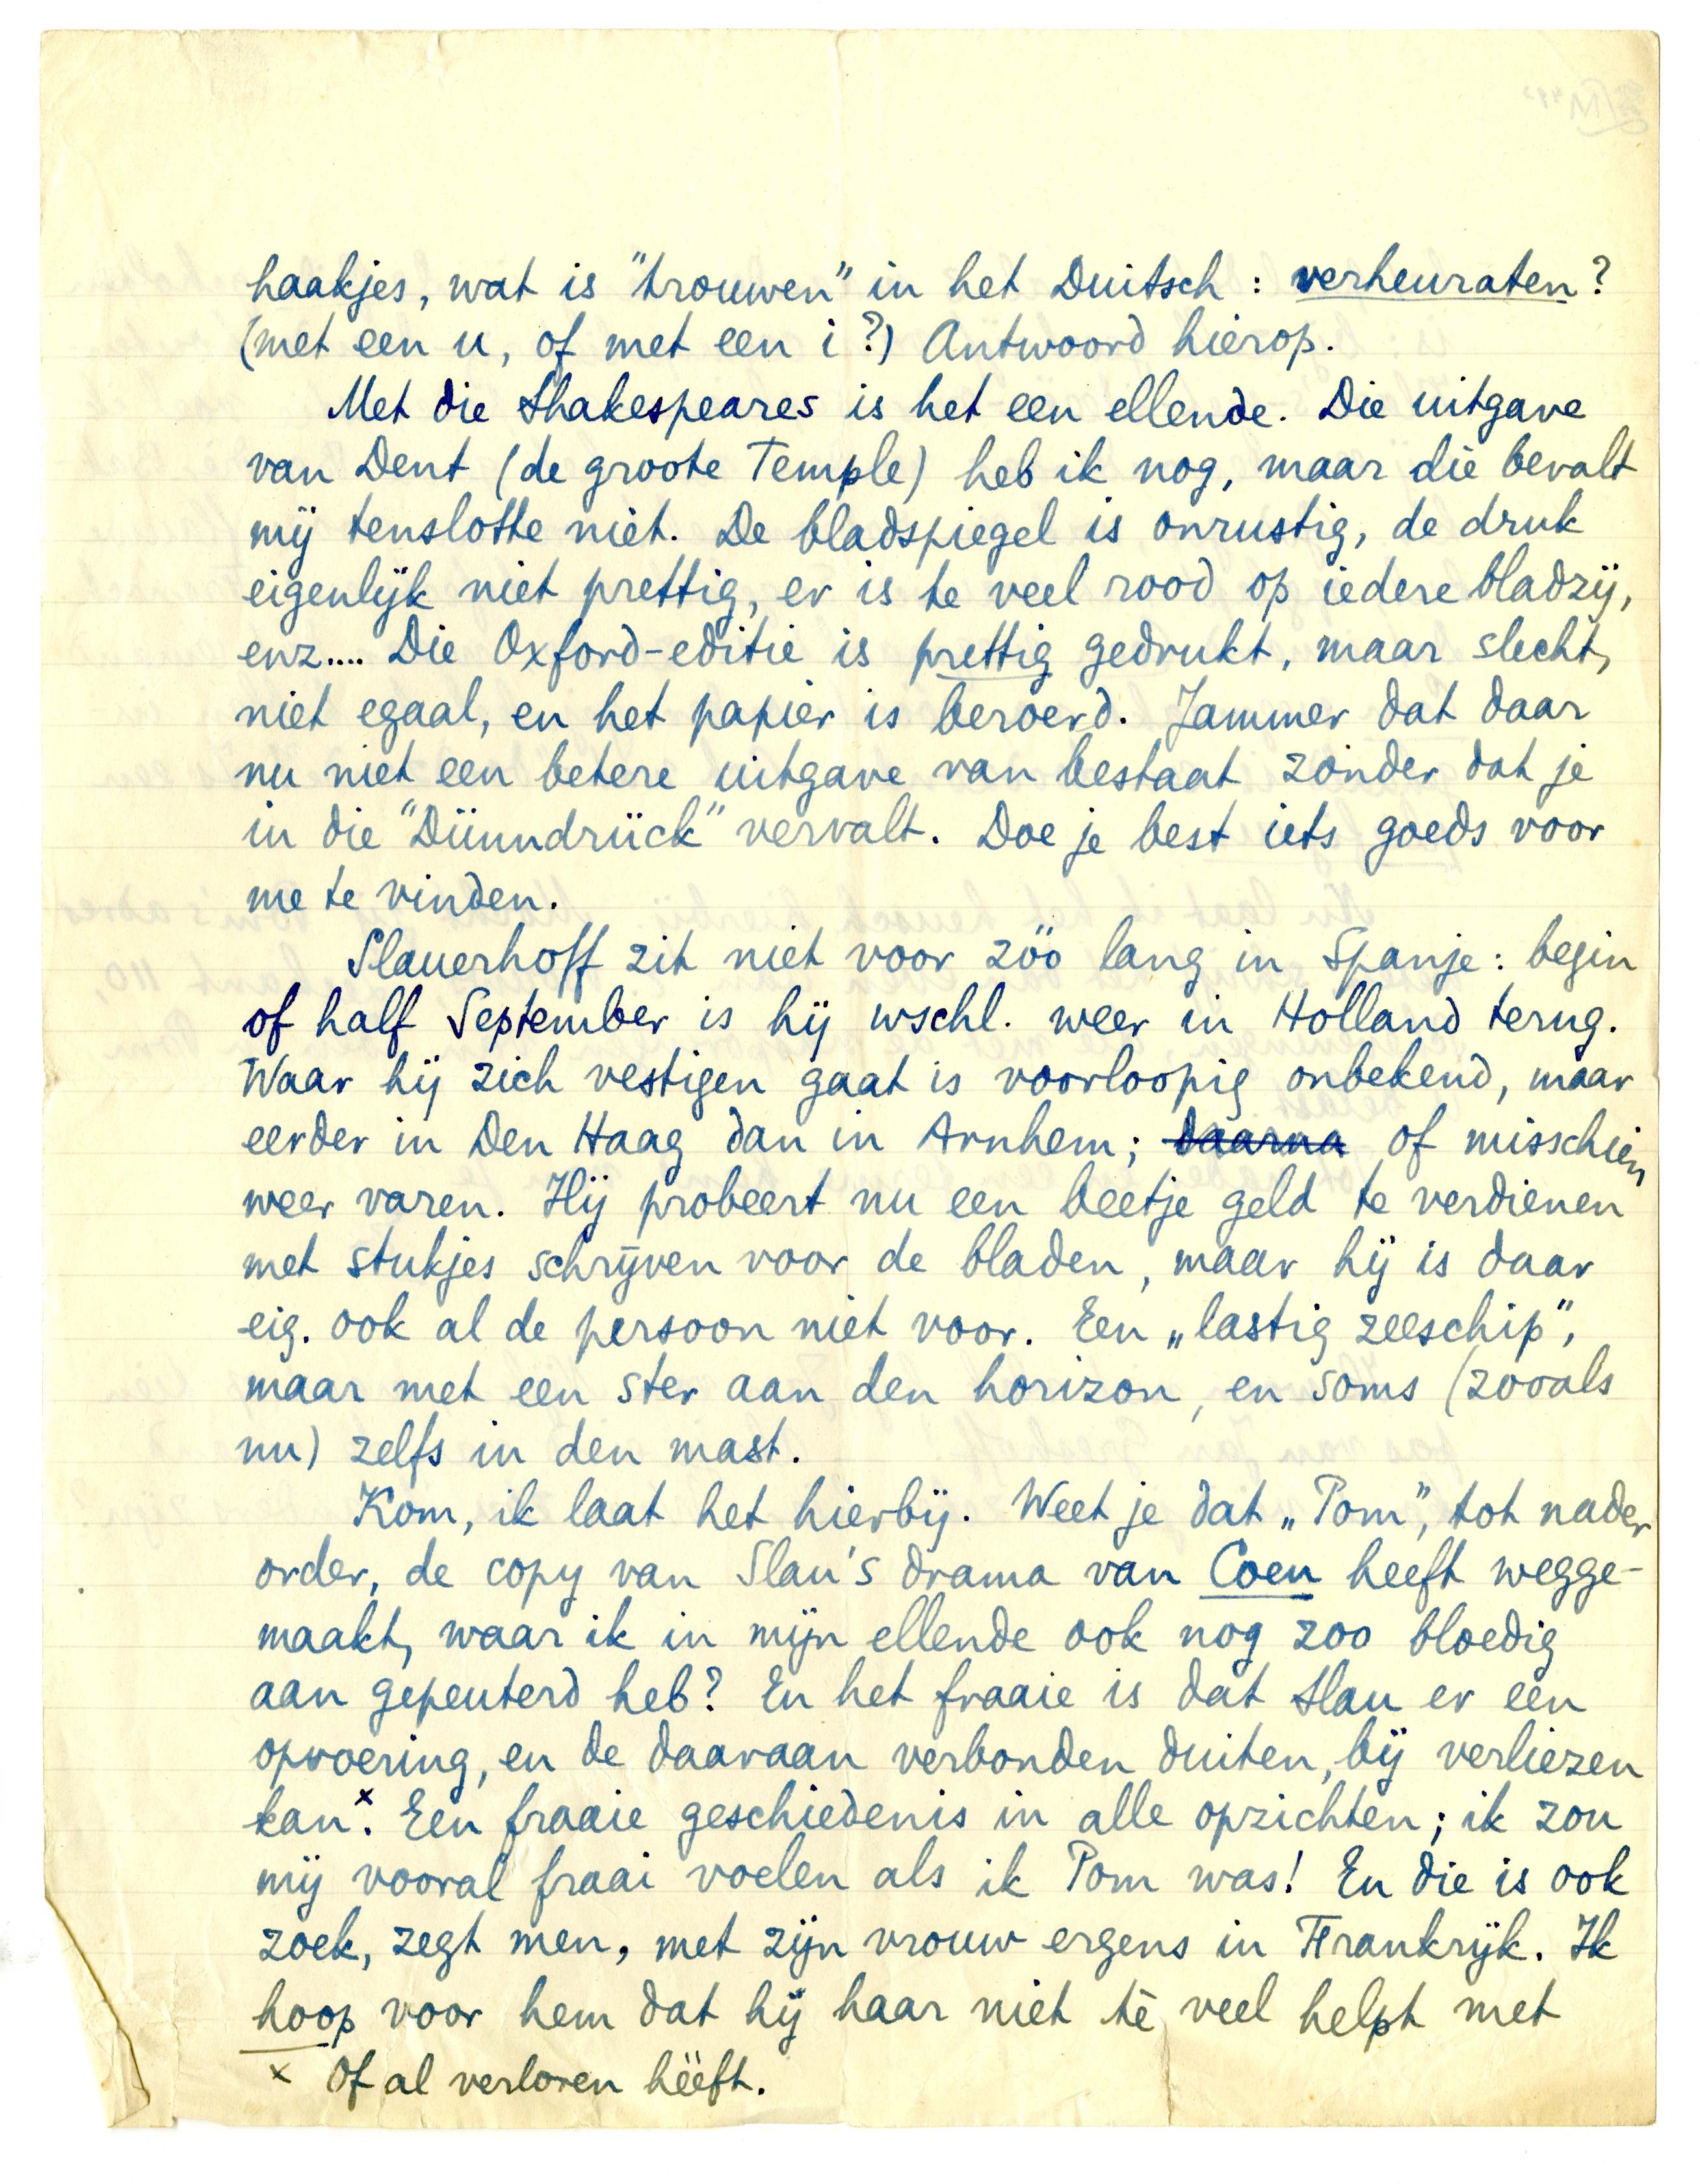 haakjes, wat is "trouwen" in het Duitsch: verheuraten?
(met een u, of met een i?) Antwoord hierop.
Met die Shakespeares is het een ellende. Die uitgave
van Dent (de groote Temple) heb ik nog, maar die bevalt
mij tenslotte niet. De bladspiegel is onrustig, de druk
eigenlijk niet prettig, er is te veel rood op iedere bladzij,
enz.... Die Oxford-editie is prettig gedrukt, maar slecht,
niet egaal, en het papier is beroerd. Jammer dat daar
nu niet een betere uitgave van bestaat zonder dat je
in die "Dünndrück" vervalt. Doe je best iets goeds voor
me te vinden.
Slauerhoff zit niet voor zóó lang in Spanje: begin
of half September is hij wschl. weer in Holland terug.
Waar hij zich vestigen gaat is voorloopig onbekend, maar
eerder in Den Haag dan in Arnhem; daarna of misschien
weer varen. Hij probeert nu een beetje geld te verdienen
met stukjes schrijven voor de bladen, maar hij is daar
eig. ook al de persoon niet voor. Een „lastig zeeschip",
maar met een ster aan den horizon, en soms (zooals
nu) zelfs in den mast.
Kom, ik laat het hierbij. Weet je dat „Pom", tot nader
order, de copy van Slau's drama van Coen heeft wegge-
maakt, waar ik in mijn ellende ook nog zoo bloedig
aan gepeuterd heb? En het fraaie is dat Slau er een
opvoering, en de daaraan verbonden duiten, bij verliezen
kan.x Een fraaie geschiedenis in alle opzichten; ik zou
mij vooral fraai voelen als ik Pom was! En die is ook
zoek, zegt men, met zijn vrouw ergens in Frankrijk. Ik
hoop voor hem dat hij haar niet té veel helpt met
x Of al verloren hééft.